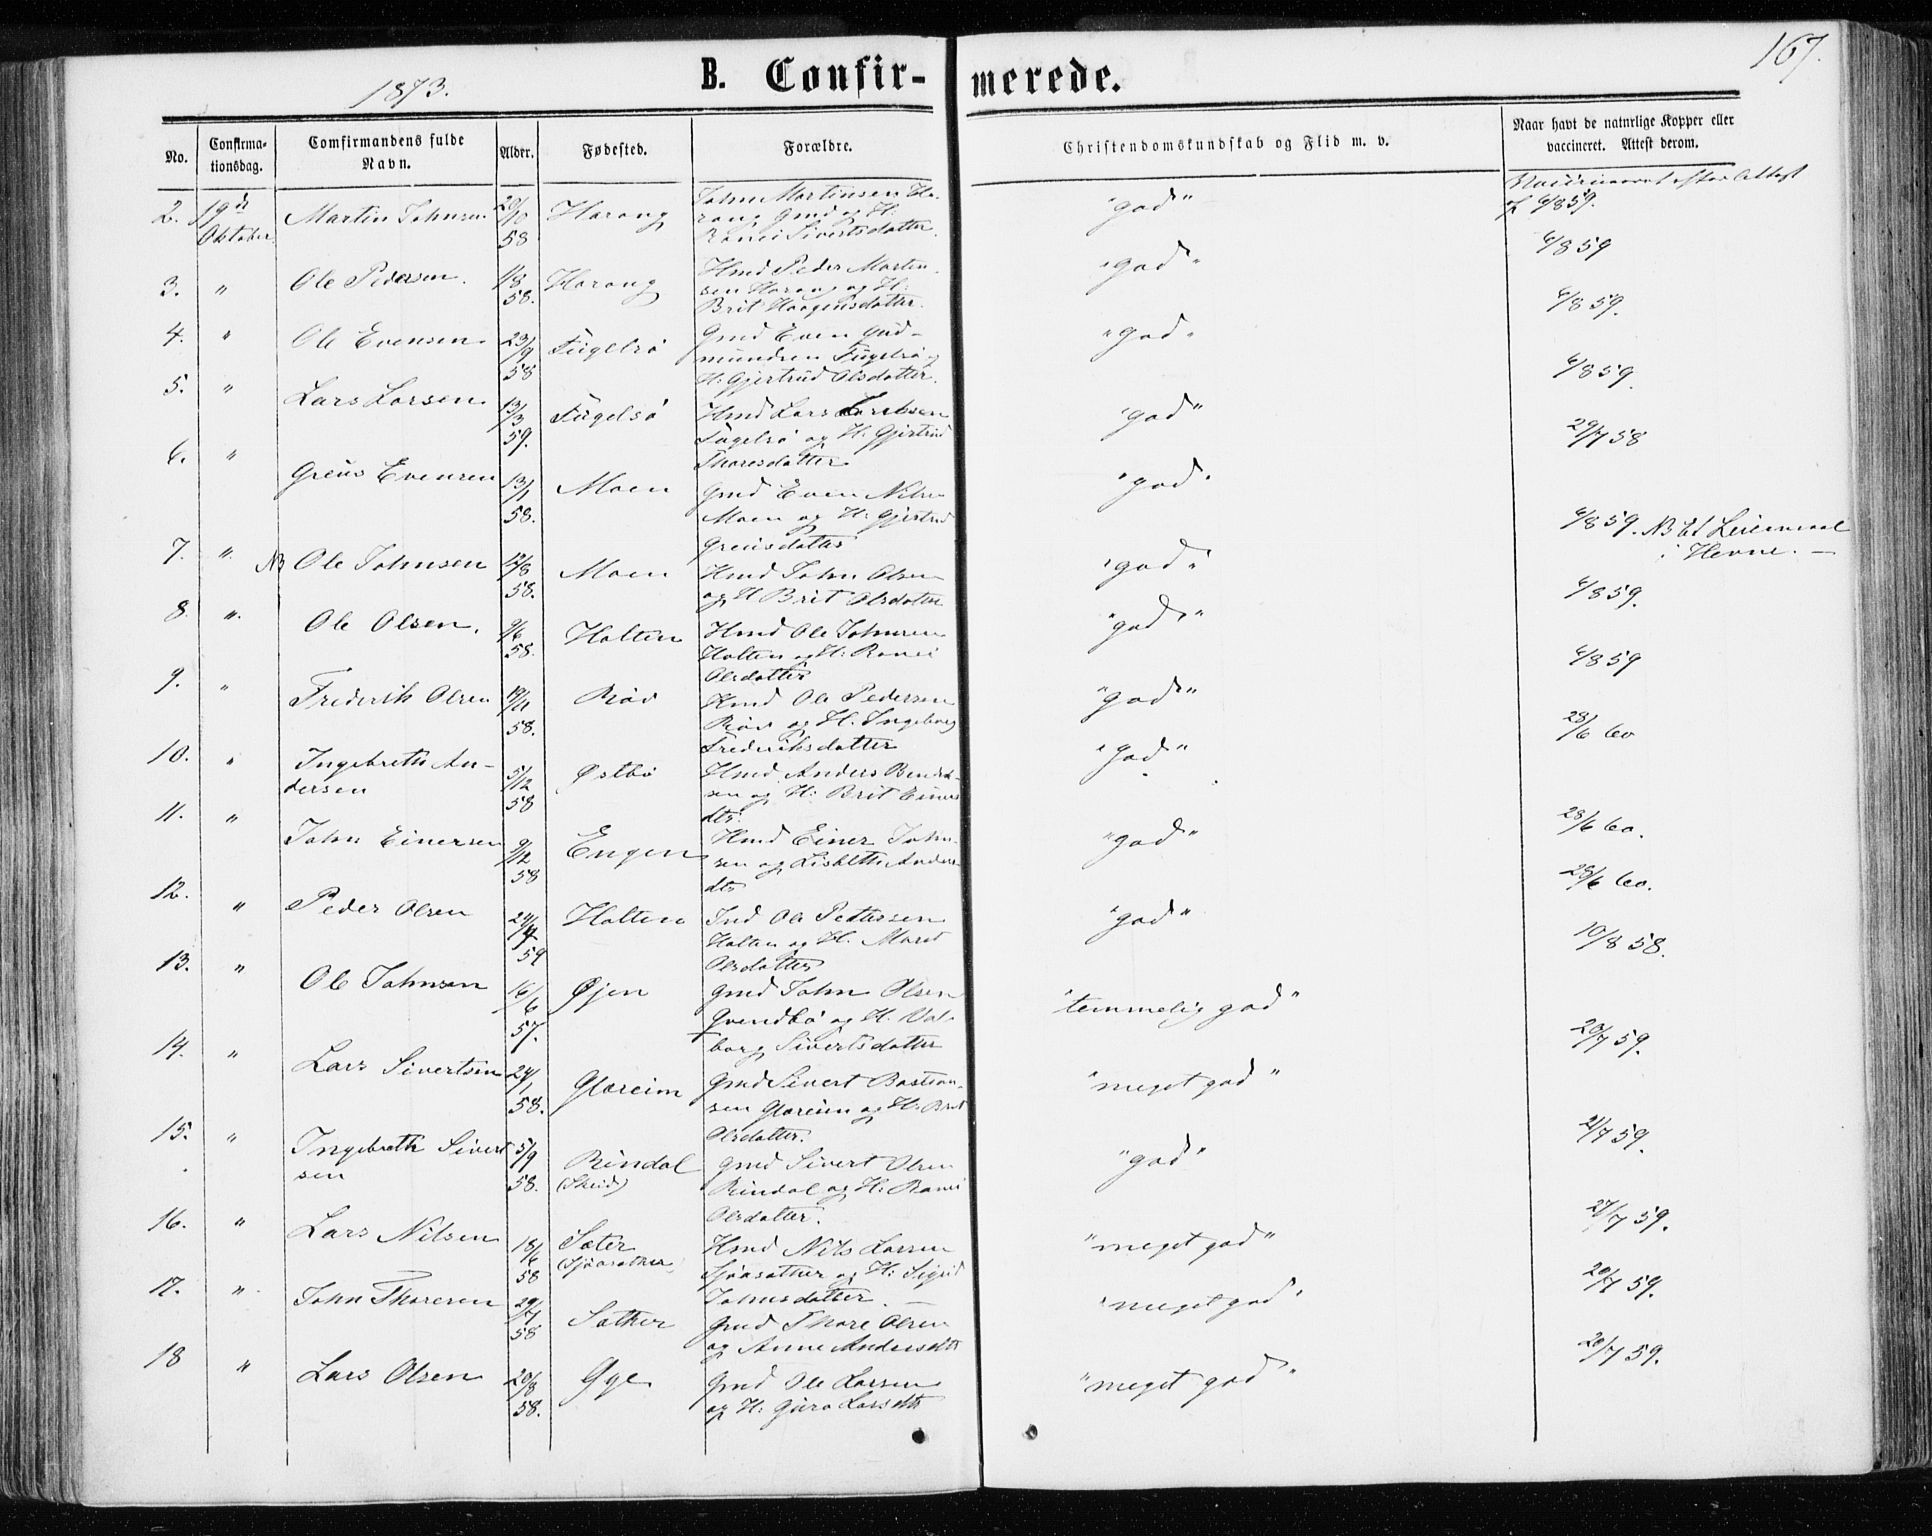 167.
1873.
B. Confir- merede.
No.
Confirma-
tionsdag.
Comfirmandens fulde
Navn.
Alder.
Fødested.
Forældre.
Christendomskundskab og Flid m. v.
Naar havt de naturlige Kopper eller
vaccineret. Attest derom.
2. 19de Oktober Martin Johnsen 20/10 58 Harang John Martinsen Ha-
rang Gmd og H:
Ranei Sivertsdatter. "god" Vaccineret efter Attest
af 6/8 59.
3. " Ole Pedersen. 1/8 58. Harang Hmd Peder Martin-
sen Harang og H:
Brit Haagensdatter. "god" 6/8 59
4. " Ole Evensen 23/9 58 Fugelsø Gmd Even Gud-
mundsen Fugelsø og
H: Gjertrud Olsdatter. "god" 6/8 59.
5. " Lars Larsen 13/3 59. Fugelsø Hmd Lars
Fugelsø og H: Gjertrud
Thoresdatter "god" 6/8 59.
6. " Greius Evensen 13/1 58. Moen Gmd Even Nilsen
Moen og H: Gjertrud
Greiusdatter "god" 29/7 58
7. " NB Ole Johnsen 12/8 58. Moen Hmd John Olsen
og H Brit Olsdatter "god" 6/8 59. NB Et Leiermaal
i Hevne. —
8. " Ole Olsen. 9/6 58. Halten Hmd Ole Johnsen
Halten og H: Ranei
Olsdatter "god" 6/8 59.
9. " Frederik Olsen 19/11 58. Røv Hmd Ole Pedersen
Røv og H. Ingeborg
Frederiksdatter "god" 6/8 59
10. " Ingebreth An-
dersen 5/12 58 Østbø Hmd Anders Bendik-
sen og H: Brit Einers
dtr. "god" 28/6 60
11. " John Einersen 9/12 58 Engen Hmd Einer John-
sen og Lisbeth Anders-
dtr "god" 28/6 60.
12. " Peder Olsen 24/4 59 Halten Ind Ole Pettersen
Halten og H. Marit
Olsdatter "god" 28/6 60.
13. " Ole Johnsen 16/6 57. Øjen Gmd John Olsen
Qvendbø og H. Val-
borg Sivertsdatter "temmelig god" 10/8 58.
14. " Lars Sivertsen 24/1 58. Glæreim Gmd Sivert Bastian-
sen Glæreim og H: Brit
Olsdatter. "meget god" 20/7 59.
15. " Ingebreth Sivert
sen 5/9 58. Rindal
(Skeid) Gmd Sivert Olsen
Rindal og H: Ranei
Olsdatter. "god" 21/7 59.
16. " Lars Nilsen 18/6 58 Sæter
(Sjøasæther) Hmd Nils Larsen
Sjøasæther og H: Sigrid
Johnsdatter. — "meget god" 27/7 59.
17. " John Thoresen 29/7 58 Sæther Gmd Thore Olsen
og Anne Andersdtr "meget god" 20/7 59.
18 " Lars Olsen 20/8 58. Gye Gmd Ole Larsen
og H: Guro Larsdtr "meget god" 20/7 59.